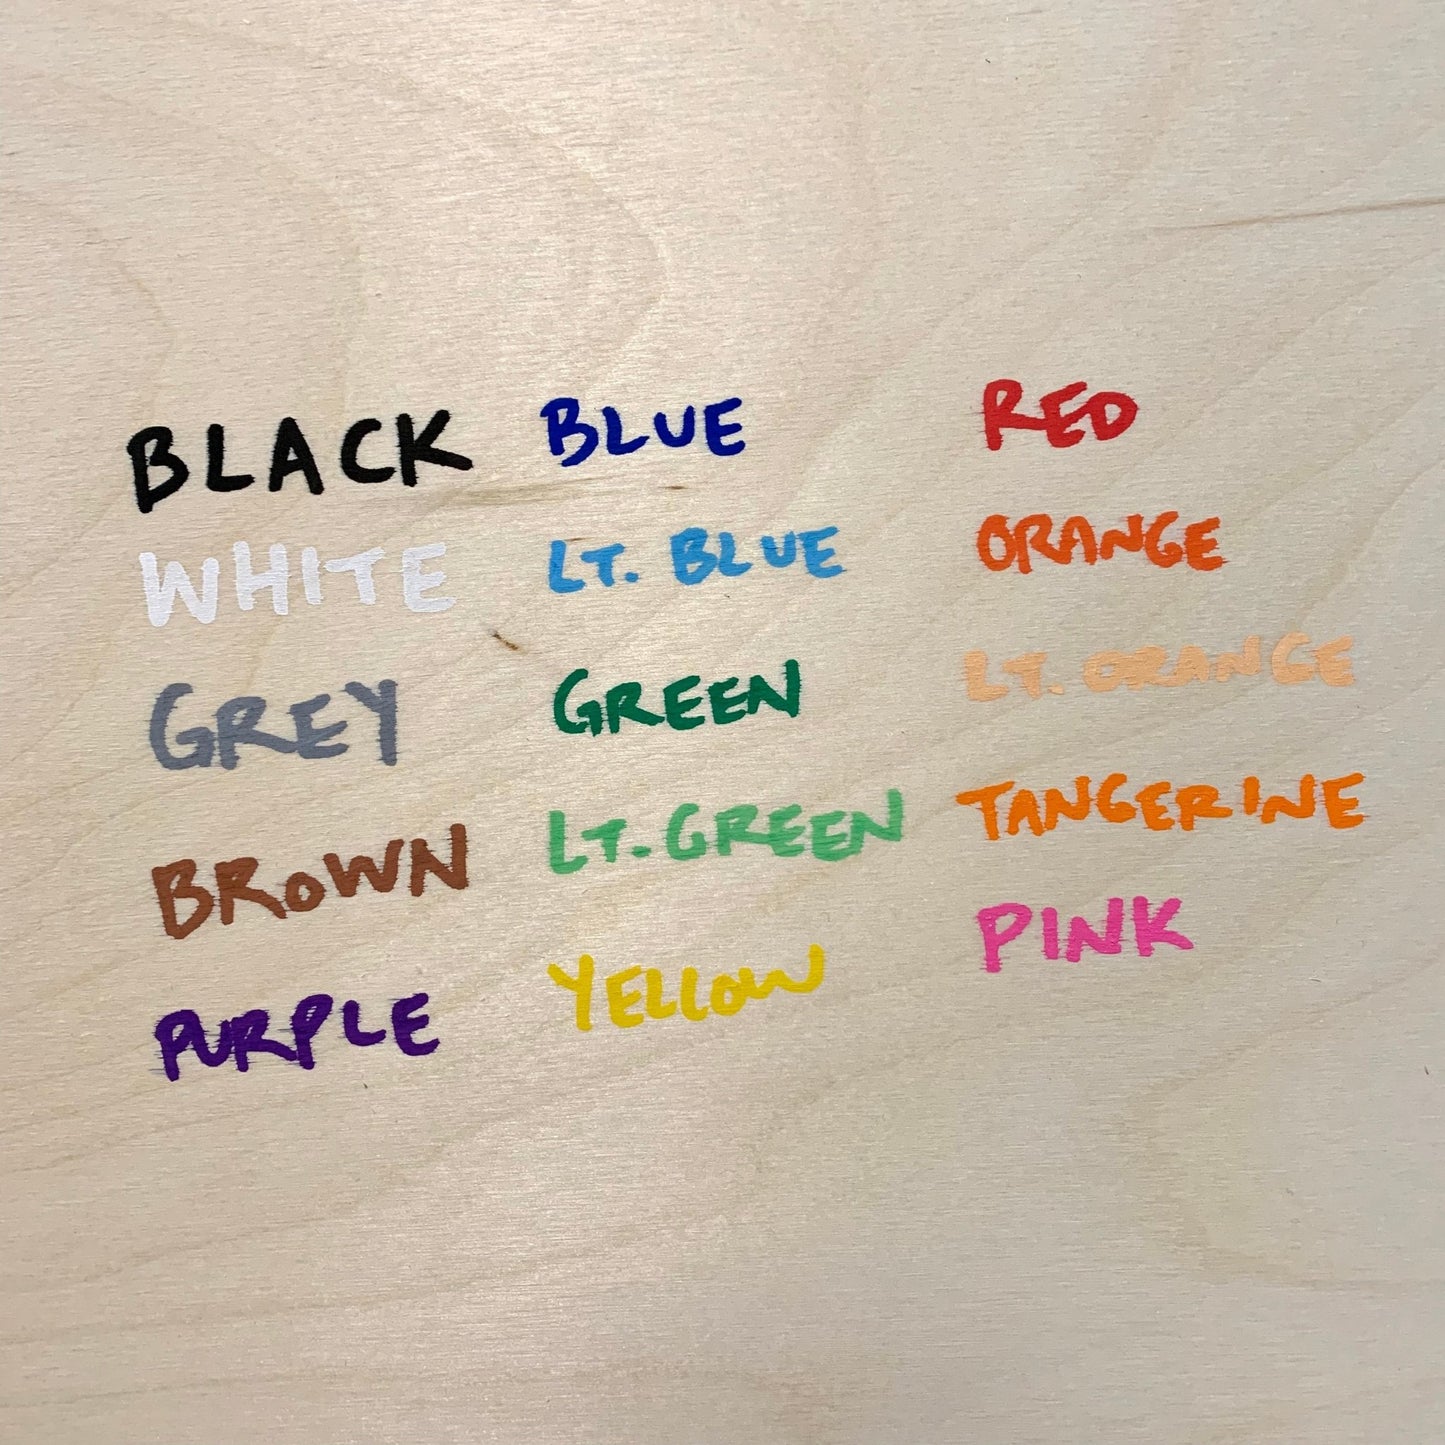 BLACK
WHITE
GREY
BROWN
PURPLE
BLUE
LT. BLUE
GREEN
LT. GREEN
YELLOW
RED
ORANGE
LT. ORANGE
TANGERINE
PINK